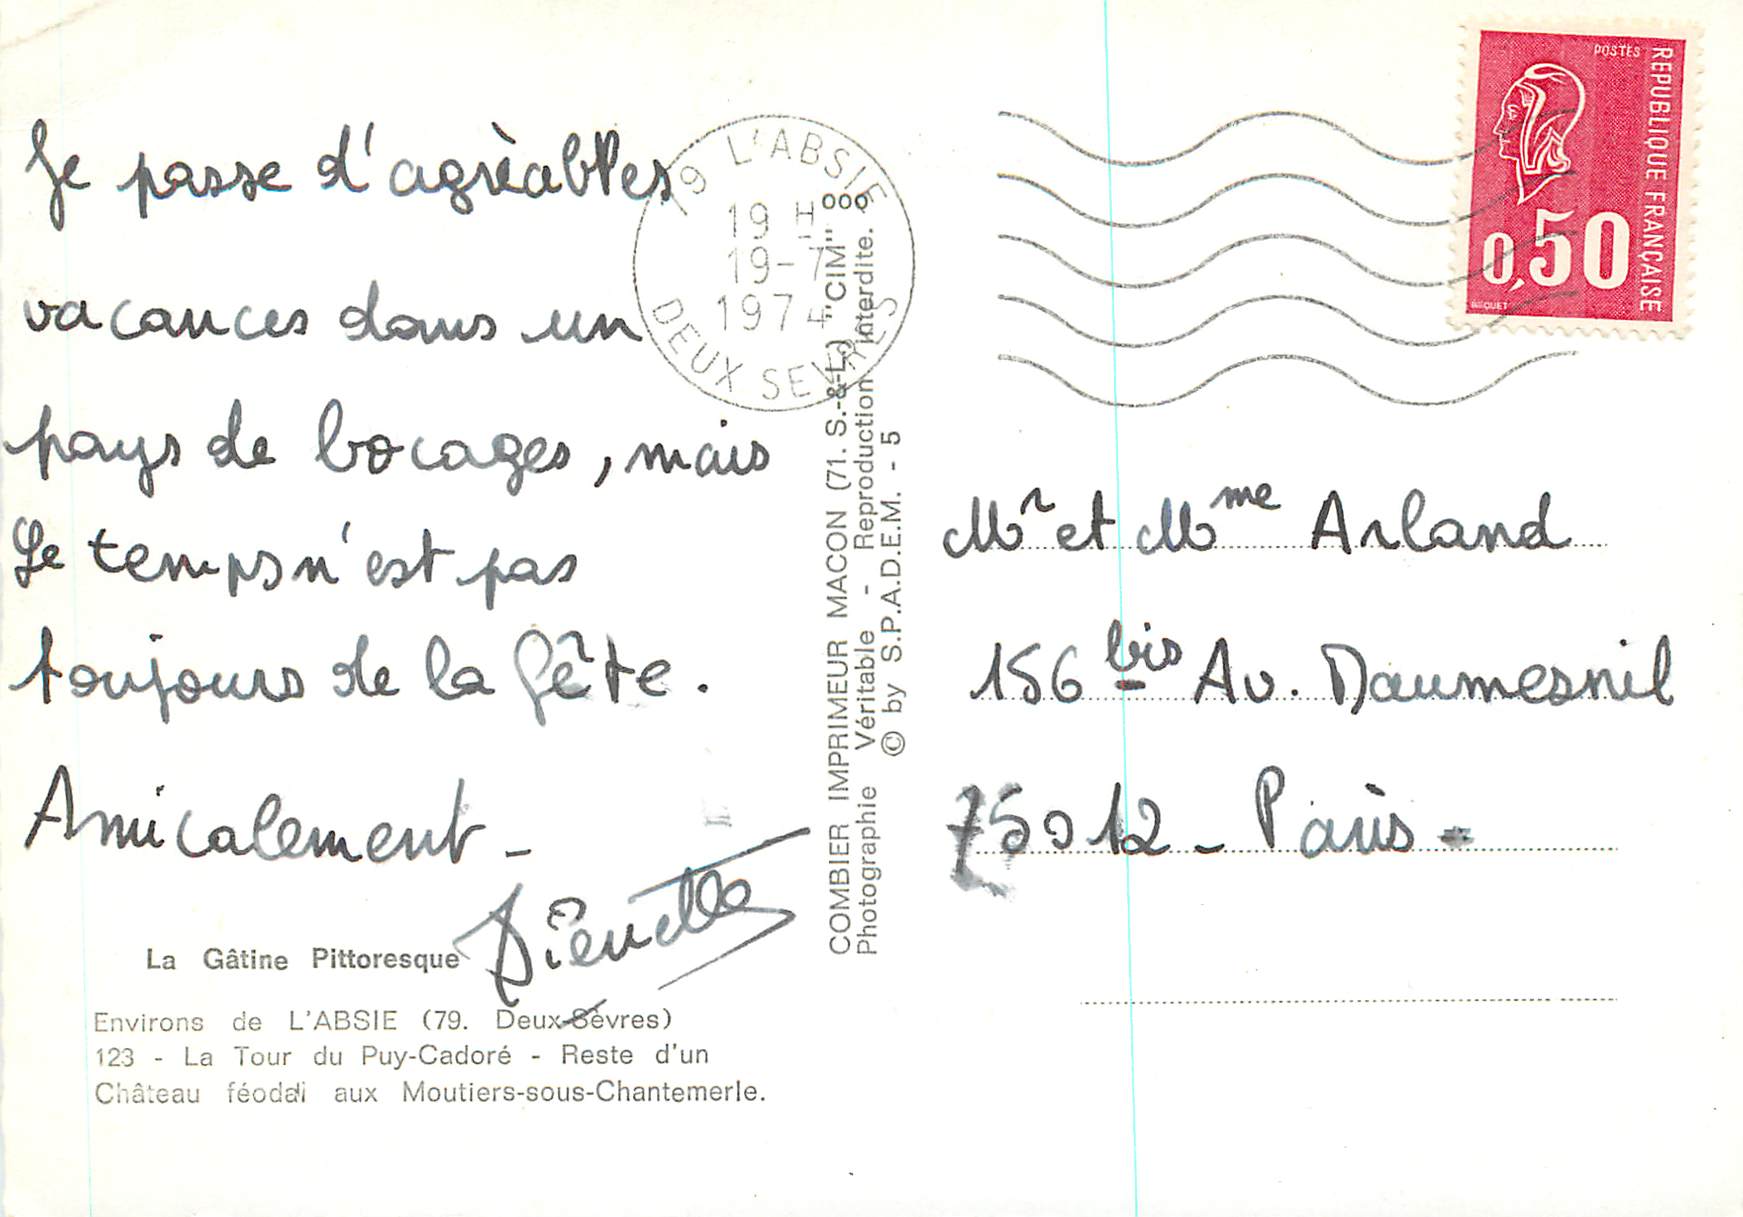 Je passe d'agréables
vacances dans un
pays de bocages, mais
le temps n'est pas
toujours de la fête.
Amicalement -
Pierrette
La Gâtine Pittoresque
Environs de L'ABSIE (79. Deux-Sèvres)
123 - La Tour du Puy-Cadoré - Reste d'un
Château féodal aux Moutiers-sous-Chantemerle.
79 L'ABSIE
19 H
19-7
1974
DEUX SEVRES
COMBIER IMPRIMEUR MACON (71. S.-&-L.) "CIM"
Photographie Véritable - Reproduction interdite.
© by S.P.A.D.E.M. - 5
POSTES
REPUBLIQUE FRANÇAISE
0,50
BEQUET
Mr et Mme Arland
156 bis Av. Daumesnil
75012 - Paris -